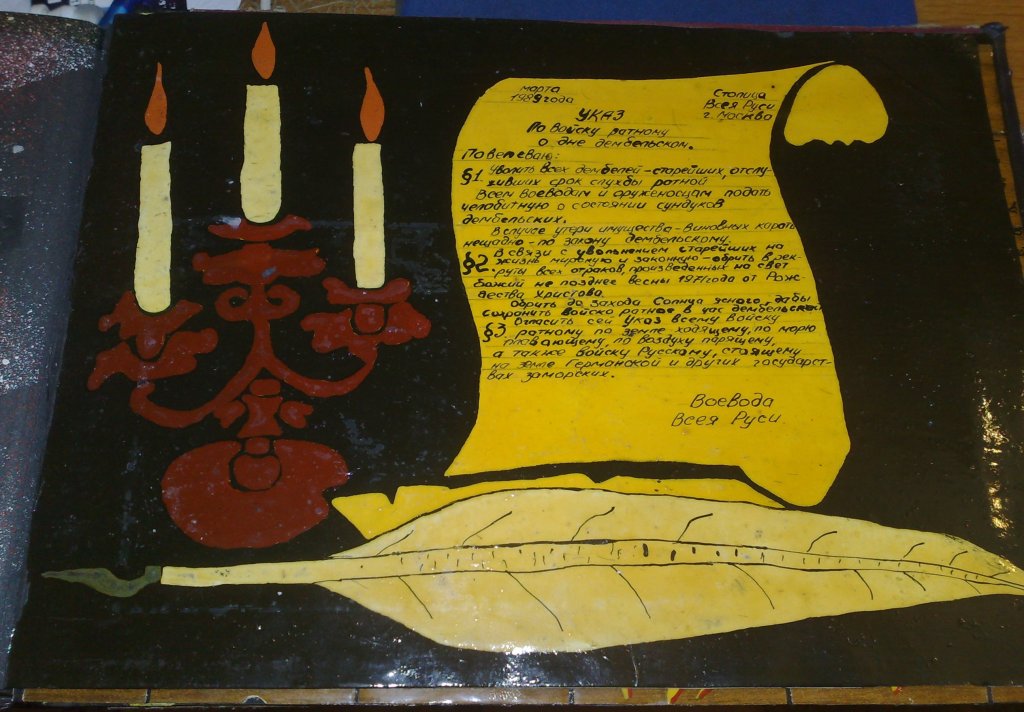 марта
1989 года
Столица
Всея Руси
г. Москва
УКАЗ
По войску ратному
о дне дембельском.
Повелеваю:
§1. Уволить всех дембелей - старейших, отслу-
живших срок службы ратной
Всем Воеводам и оруженосцам подать
челобитную о состоянии сундуков
дембельских.
В случае утери имущества - виновных карать
нещадно - по закону дембельскому.
§2. В связи с увольнением старейших на
жизнь мирскую и законную - обрить в рек-
руты всех отраков, произведенных на свет
божий не позднее весны 1971 года от Рож
вества Христова.
Обрить до захода Солнца ясного, дабы
сохранить войско ратное в час дембельский
§3 Огласить сей Указ всему Войску
ратному по земле ходящему, по морю
плавающему, по воздуху парящему,
а также войску Русскому, стоящему
на земле Германской и других государст-
вах заморских.
Воевода
Всея Руси.